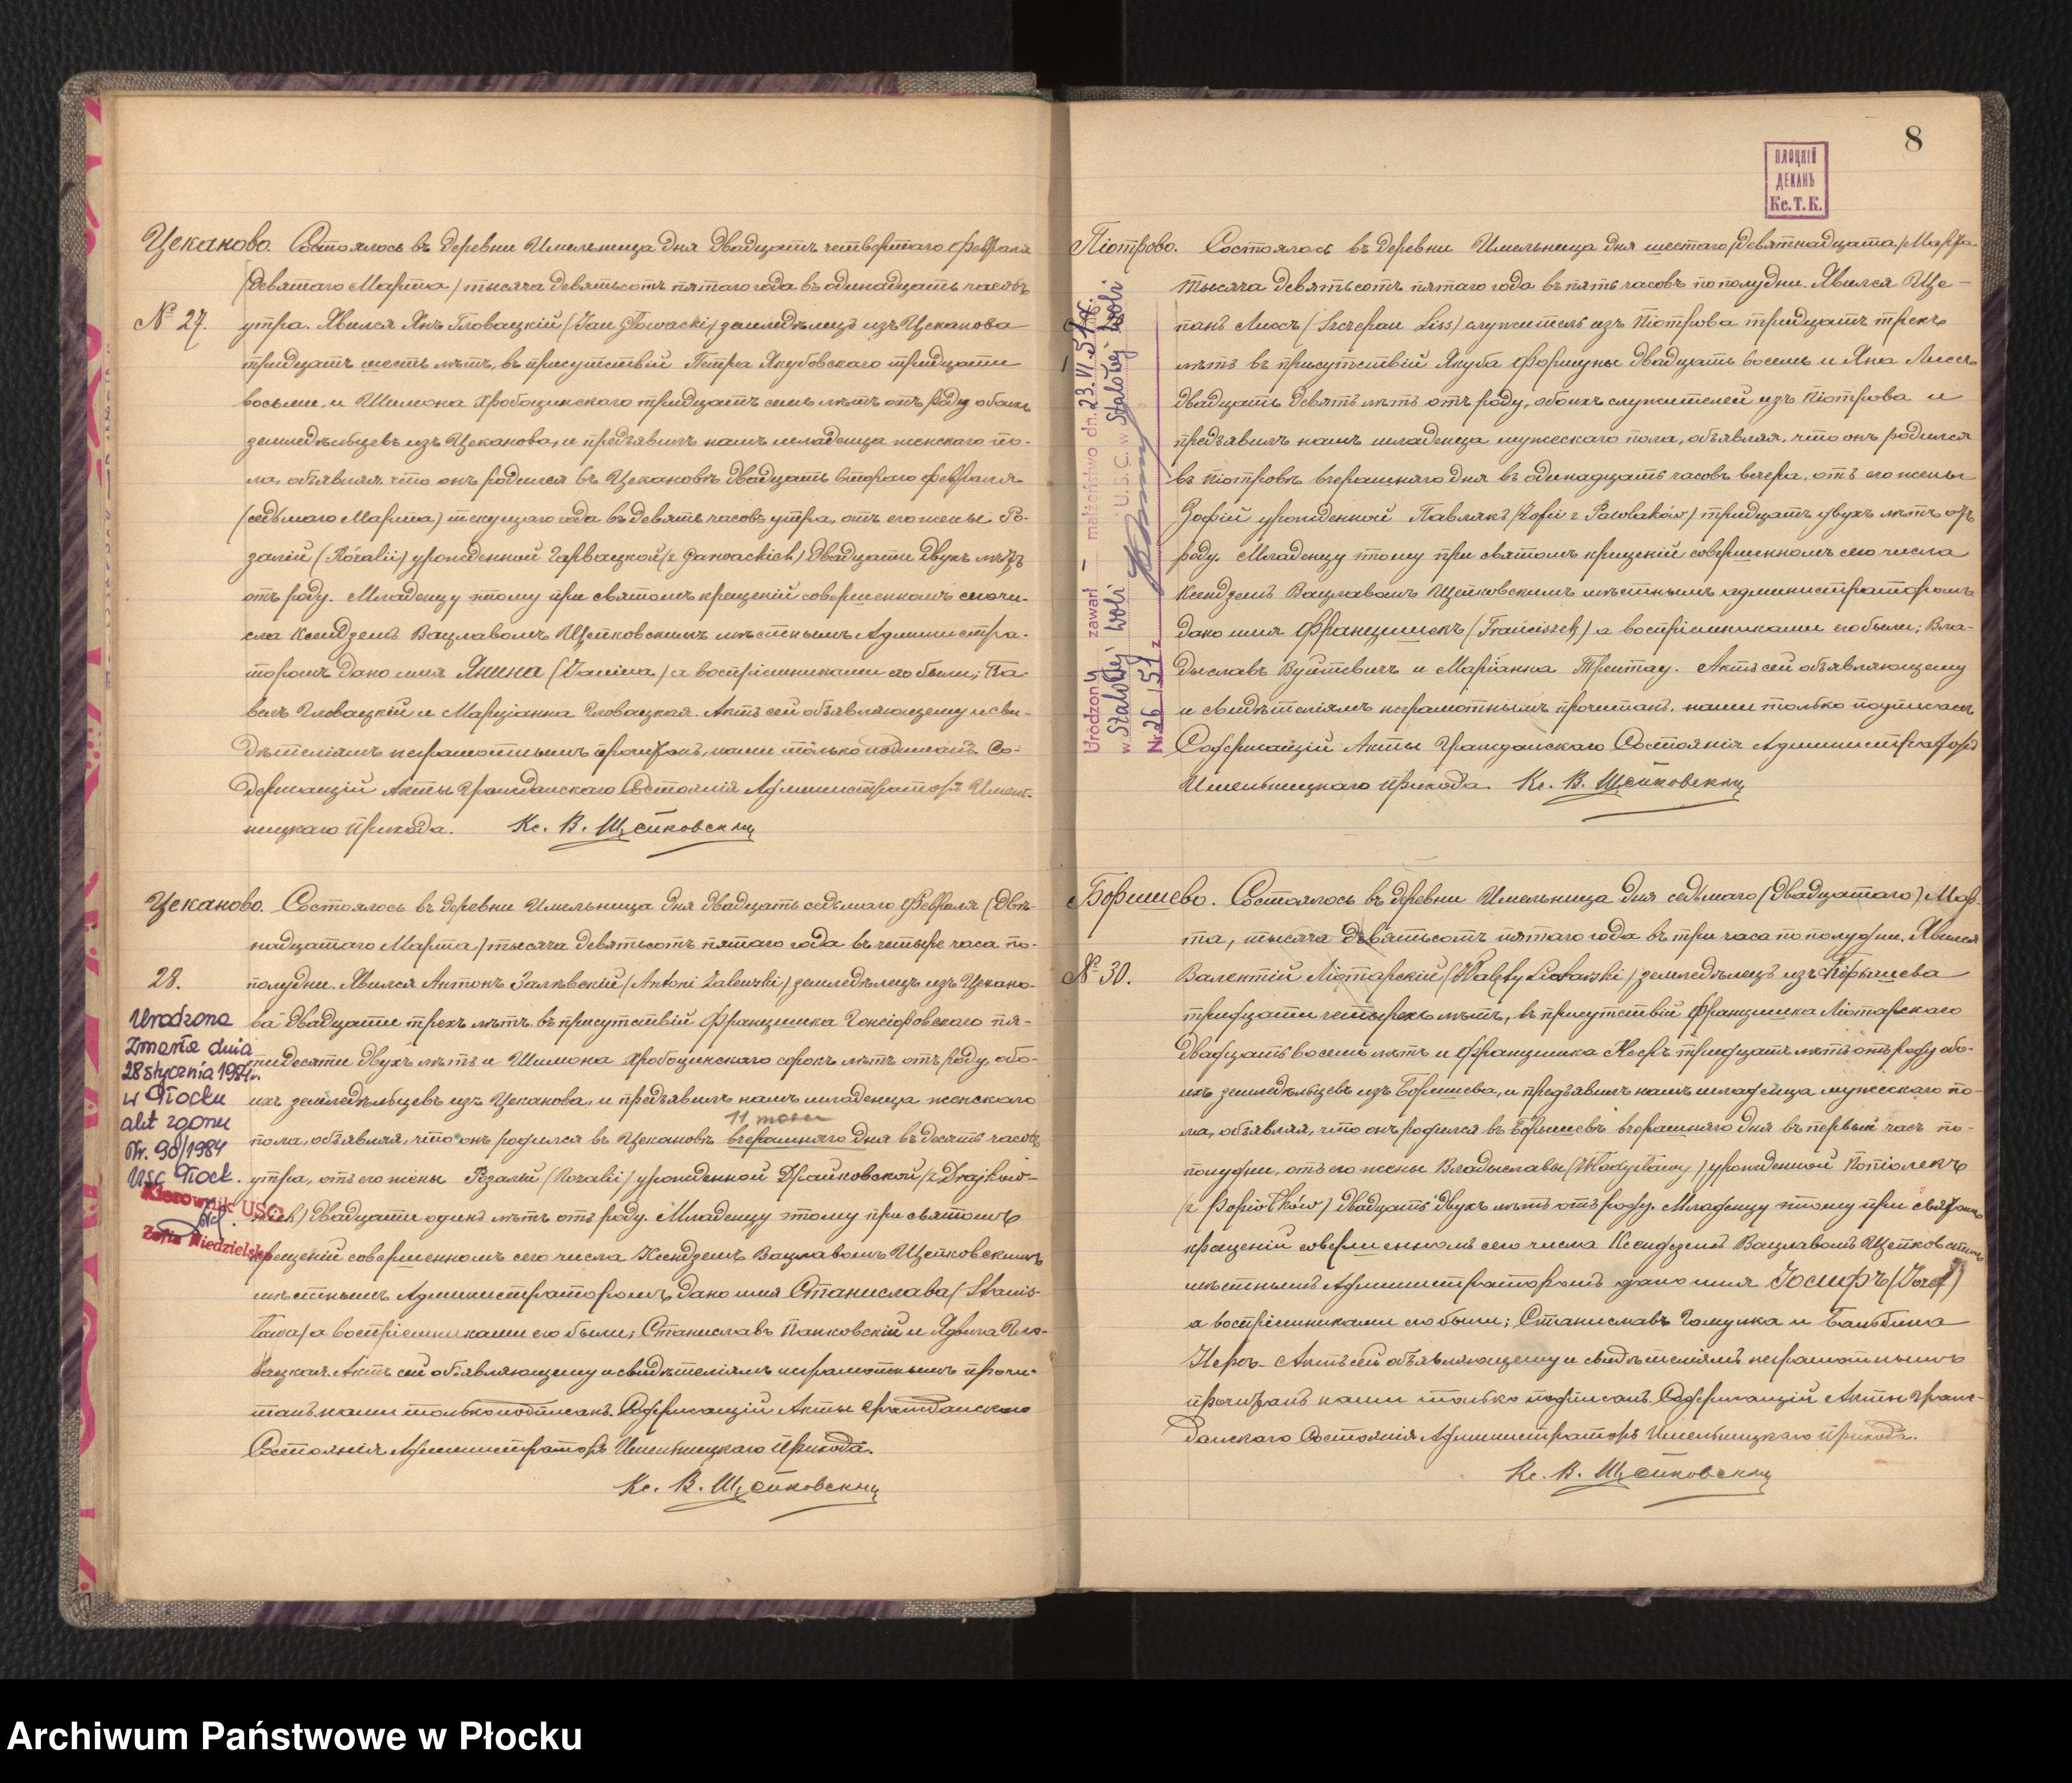 Цеканово. Состоялось въ деревни Имельница дня двадцать четвертаго Февраля
(девятаго Марта) тысяча девятьсотъ пятаго года въ одинадцать часовъ
№ 27. утра. Явился Янъ Гловацкій (Jan Głowacki) земледѣлецъ изъ Цеканова
тридцать шесть лѣтъ, въ присутствій Петра Якубовскаго тридцати
восьми и Шимона Хробоцинскаго тридцать семь лѣтъ отъ роду обоихъ
земледѣльцевъ изъ Цеканова, и предъявилъ намъ младенца женскаго по-
ла, объявляя что онъ родился въ Цекановѣ двадцать втораго Февраля
(седьмаго Марта) текущаго года въ девять часовъ утра, отъ его жены Ро-
залій (Rozalii) урожденной Гарвацкой (z Garwackich) двадцати двухъ лѣтъ
отъ роду. Младенцу этому при святомъ крещеній совершенномъ сего чи-
сла Ксендземъ Вацлавомъ Щепковскимъ мѣстнымъ Администра-
торомъ дано имя Янина (Janina) а воспріемниками его были; Па-
велъ Гловацкій и Марціанна Гловацкая. Актъ сей объявляющему и сви-
дѣтеліямъ неграмотнымъ прочитанъ, нами только подписанъ Со-
держащій Акты Гражданскаго Состоянія Администраторъ Имель-
ницкаго прихода. Кс. В. Щепковскій
Цеканово. Состоялось въ деревни Имельница дня двадцать седьмаго Февраля (двѣ-
надцатаго Марта) тысяча девятьсотъ пятаго года въ четыре часа по-
28. полудни. Явился Антонъ Залѣвскій (Antoni Zalewski) земледѣлецъ изъ Цекано-
ва двадцати трехъ лѣтъ въ присутствій Францишка Гонсіоровскаго пя-
тидесяти двухъ лѣтъ и Шимона Хробоцинскаго сорокъ лѣтъ отъ роду, обо-
ихъ земледѣльцевъ изъ Цеканова, и предъявилъ намъ младенца женскаго
11 marca
пола, объявляя, что онъ родился въ Цекановѣ вчерашняго дня въ десять часовъ
утра, отъ его жены Розалій (Rozalii) урожденной Драйковской (z Drajkow-
skich) двадцати одинъ лѣтъ отъ роду. Младенцу этому при святомъ
крещеній совершенномъ сего числа Ксендземъ Вацлавомъ Щепковскимъ
мѣстнымъ Администраторомъ, дано имя Станислава (Stanis-
ława) а воспріемниками его были; Станиславъ Панковскій и Ядвига Гло-
вацкая. Актъ сей объявляющему и свидѣтеліямъ неграмотнымъ прочи-
танъ нами только подписанъ. Содержащій Акты Гражданскаго
Состоянія Администраторъ Имельницкаго прихода.
Кс. В. Щепковскій
Urodzona
Zmarła dnia
28 stycznia 1984r.
w Płocku
akt zgonu
Nr. 90/1984
USC Płock.
Kierownik USC
Zofia Niedzielska
8
ПЛОЦКІЙ
ДЕКАНЪ
Кс. Т. К.
Піотрово. Состоялось въ деревни Имельница дня шестаго (девятнадцата) Марта
тысяча девятьсотъ пятаго года въ пять часовъ по полудни. Явился Ще-
панъ Лиссъ (Szczepan Liss) служитель изъ Піотрова тридцать трехъ
лѣтъ въ присутствій Якуба Фортуны двадцать восемь и Яна Лисса
двадцать девять лѣтъ отъ роду, обоихъ служителей изъ Піотрова и
предъявилъ намъ младенца мужескаго пола, объявляя, что онъ родился
въ Піотровѣ вчерашняго дня въ одинадцать часовъ вечера, отъ его жены
Зофій урожденной Павлякъ (Zofii z Pawlaków) тридцать двухъ лѣтъ отъ
роду. Младенцу этому при святомъ крещеній совершенномъ сего числа
Ксендземъ Вацлавомъ Щепковскимъ мѣстнымъ администраторомъ
дано имя Францишекъ (Franciszek) а воспріемниками его были; Вла-
дыславъ Вуйтевичъ и Маріанна Трептау. Актъ сей объявляющему
и свидѣтеліямъ неграмотнымъ прочитанъ, нами только подписанъ
Содержащій Акты Гражданскаго Состоянія Администраторъ
Имельницкаго прихода. Кс. В. Щепковскій
Urodzony zawarł małżeństwo dn. 23.VI.51r.
w Stalowej Woli U.S.C. w Stalowej Woli
Nr. 26/51 r.
Боришево. Состоялось въ деревни Имельница дня седьмаго (двадцатаго) Мар-
та, тысяча девятьсотъ пятаго года въ три часа по полудни. Явился
№ 30. Валентій Ліотарскій (Walenty Liotarski) земледѣлецъ изъ Борышева
тридцати четырехъ лѣтъ, въ присутствій Францишка Ліотарскаго
двадцать восемь лѣтъ и Францишка Нервъ тридцать лѣтъ отъ роду обо-
ихъ земледѣльцевъ изъ Боришева, и предъявилъ намъ младенца мужескаго по-
ла, объявляя, что онъ родился въ Борышевѣ вчерашняго дня въ первый часъ по-
полудни, отъ его жены Владыславы (Władysławy) урожденной Попіолекъ
(z Popiołków) двадцать двухъ лѣтъ отъ роду. Младенцу этому при святомъ
крещеній совершенномъ сего числа Ксендземъ Вацлавомъ Щепковскимъ
мѣстнымъ Администраторомъ дано имя Іосифъ (Józef)
а воспріемниками его были; Станиславъ Гомулка и Бальбина
Нервъ. Актъ сей объявляющему и свидѣтеліямъ неграмотнымъ
прочитанъ нами только подписанъ. Содержащій Акты Граж-
данскаго Состоянія Администраторъ Имельницкаго прихода.
Кс. В. Щепковскій
Archiwum Państwowe w Płocku